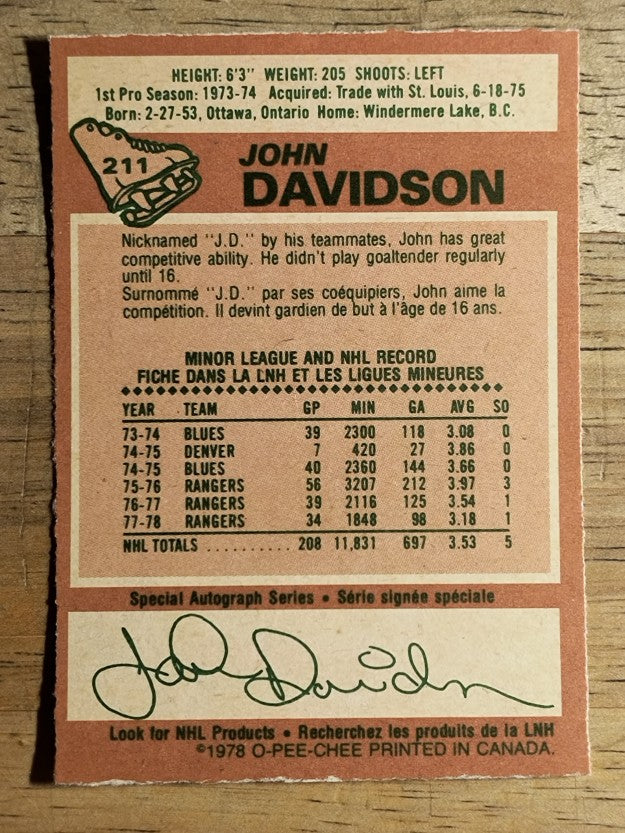 HEIGHT: 6'3" WEIGHT: 205 SHOOTS: LEFT
1st Pro Season: 1973-74 Acquired: Trade with St. Louis, 6-18-75
Born: 2-27-53, Ottawa, Ontario Home: Windermere Lake, B.C.
211
JOHN
DAVIDSON
Nicknamed "J.D." by his teammates, John has great
competitive ability. He didn't play goaltender regularly
until 16.
Surnommé "J.D." par ses coéquipiers, John aime la
compétition. Il devint gardien de but à l'âge de 16 ans.
MINOR LEAGUE AND NHL RECORD
FICHE DANS LA LNH ET LES LIGUES MINEURES
YEAR TEAM GP MIN GA AVG SO
73-74 BLUES 39 2300 118 3.08 0
74-75 DENVER 7 420 27 3.86 0
74-75 BLUES 40 2360 144 3.66 0
75-76 RANGERS 56 3207 212 3.97 3
76-77 RANGERS 39 2116 125 3.54 1
77-78 RANGERS 34 1848 98 3.18 1
NHL TOTALS .......... 208 11,831 697 3.53 5
Special Autograph Series • Série signée spéciale
John Davidson
Look for NHL Products • Recherchez les produits de la LNH
©1978 O-PEE-CHEE PRINTED IN CANADA.